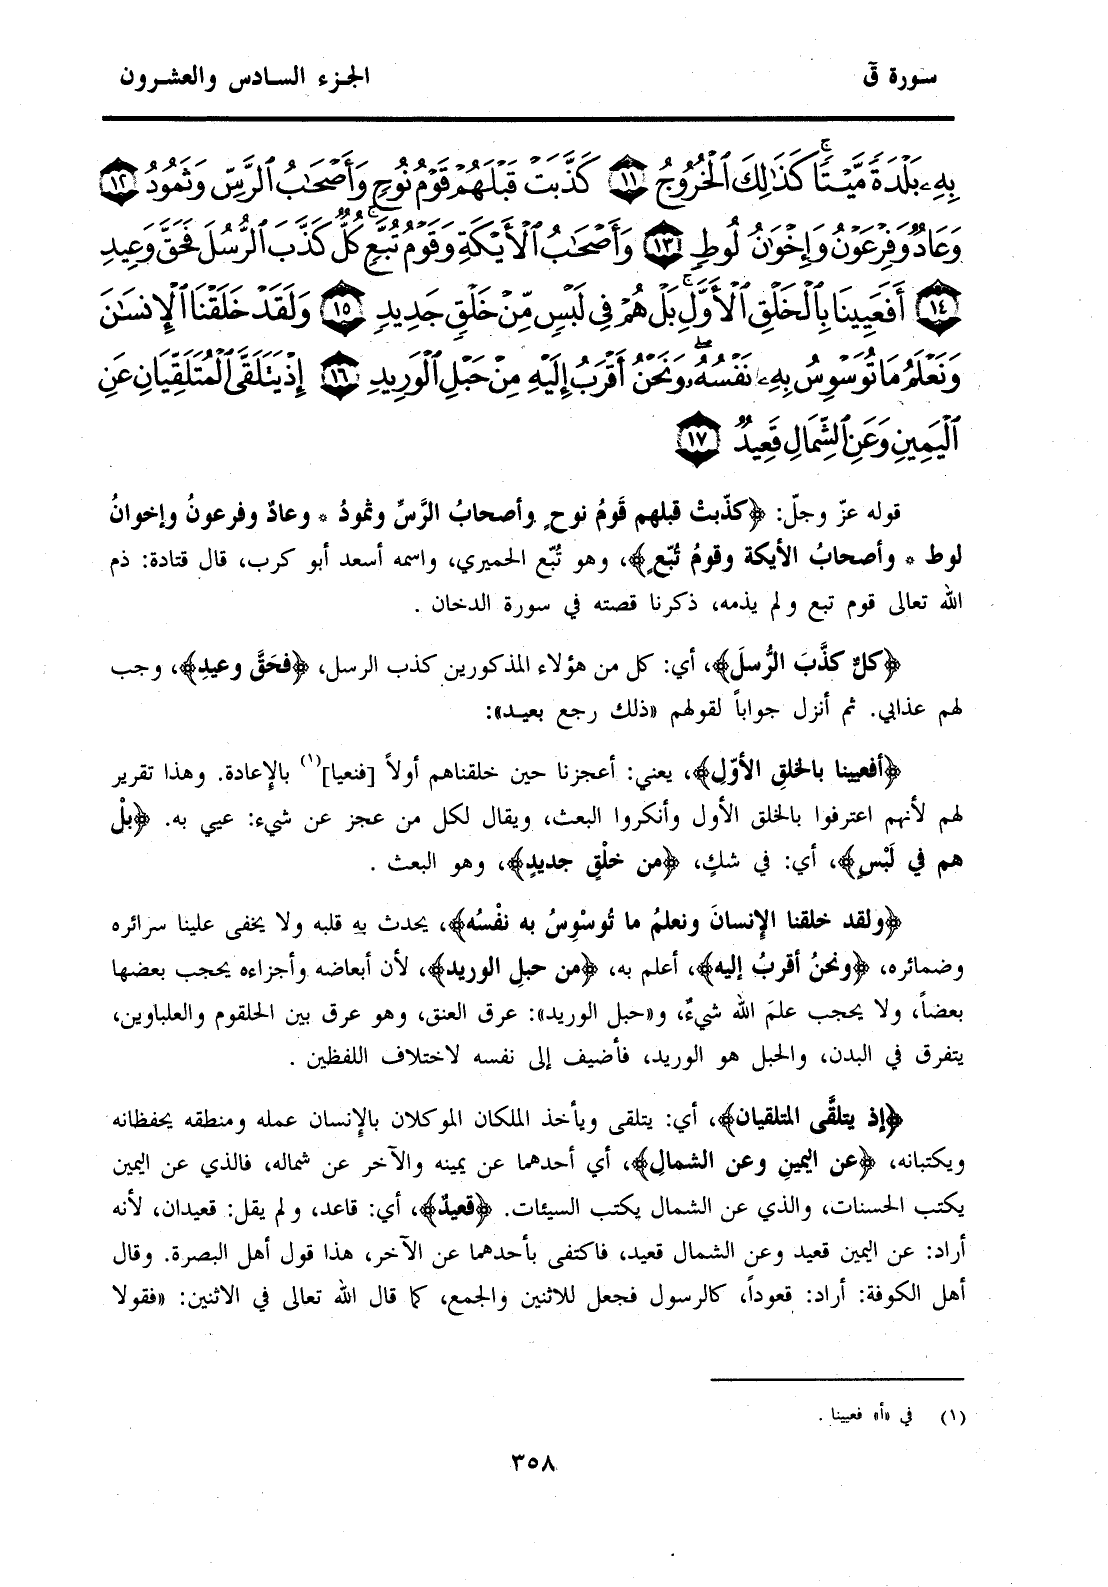 سورة قۤ
الجزء السادس والعشرون
بِهِۦ بَلْدَةً مَّيْتًا ۚ كَذَٰلِكَ ٱلْخُرُوجُ ١١ كَذَّبَتْ قَبْلَهُمْ قَوْمُ نُوحٍ وَأَصْحَٰبُ ٱلرَّسِّ وَثَمُودُ ١٢
وَعَادٌ وَفِرْعَوْنُ وَإِخْوَٰنُ لُوطٍ ١٣ وَأَصْحَٰبُ ٱلْأَيْكَةِ وَقَوْمُ تُبَّعٍ ۚ كُلٌّ كَذَّبَ ٱلرُّسُلَ فَحَقَّ وَعِيدِ
١٤ أَفَعَيِينَا بِٱلْخَلْقِ ٱلْأَوَّلِ ۚ بَلْ هُمْ فِى لَبْسٍ مِّنْ خَلْقٍ جَدِيدٍ ١٥ وَلَقَدْ خَلَقْنَا ٱلْإِنسَٰنَ
وَنَعْلَمُ مَا تُوَسْوِسُ بِهِۦ نَفْسُهُۥ ۖ وَنَحْنُ أَقْرَبُ إِلَيْهِ مِنْ حَبْلِ ٱلْوَرِيدِ ١٦ إِذْ يَتَلَقَّى ٱلْمُتَلَقِّيَانِ عَنِ
ٱلْيَمِينِ وَعَنِ ٱلشِّمَالِ قَعِيدٌ ١٧
قوله عزّ وجلّ: ﴿كذّبتْ قبلهم قَومُ نوحٍ وأصحابُ الرَّسِّ وثمودُ * وعادٌ وفرعونُ وإخوانُ
لوط * وأصحابُ الأيكة وقومُ تُبّعٍ﴾، وهو تُبّع الحميري، واسمه أسعد أبو كرب، قال قتادة: ذم
الله تعالى قوم تبع ولم يذمه، ذكرنا قصته في سورة الدخان .
﴿كلٌ كذَّبَ الرُّسلَ﴾، أي: كل من هؤلاء المذكورين كذب الرسل، ﴿فحَقَّ وعيدِ﴾، وجب
لهم عذابي. ثم أنزل جواباً لقولهم «ذلك رجع بعيد»:
﴿أفعيينا بالخلقِ الأوّلِ﴾، يعني: أعجزنا حين خلقناهم أولاً [فنعيا](١) بالإعادة. وهذا تقرير
لهم لأنهم اعترفوا بالخلق الأول وأنكروا البعث، ويقال لكل من عجز عن شيء: عيي به. ﴿بلْ
هم في لَبْسٍ﴾، أي: في شكٍ، ﴿من خلْقٍ جديدٍ﴾، وهو البعث .
﴿ولقد خلقنا الإنسانَ ونعلمُ ما تُوسْوِسُ به نفْسُه﴾، يحدث به قلبه ولا يخفى علينا سرائره
وضمائره، ﴿ونحنُ أقربُ إليه﴾، أعلم به، ﴿من حبلِ الوريد﴾، لأن أبعاضه وأجزاءه يحجب بعضها
بعضاً، ولا يحجب علمَ الله شيءٌ، و«حبل الوريد»: عرق العنق، وهو عرق بين الحلقوم والعلباوين،
يتفرق في البدن، والحبل هو الوريد، فأضيف إلى نفسه لاختلاف اللفظين .
﴿إذ يتلقَّى المتلقيان﴾، أي: يتلقى ويأخذ الملكان الموكلان بالإنسان عمله ومنطقه يحفظانه
ويكتبانه، ﴿عن اليمينِ وعن الشمالِ﴾، أي أحدهما عن يمينه والآخر عن شماله، فالذي عن اليمين
يكتب الحسنات، والذي عن الشمال يكتب السيئات. ﴿قعيدٌ﴾، أي: قاعد، ولم يقل: قعيدان، لأنه
أراد: عن اليمين قعيد وعن الشمال قعيد، فاكتفى بأحدهما عن الآخر، هذا قول أهل البصرة. وقال
أهل الكوفة: أراد: قعوداً، كالرسول فجعل للاثنين والجمع، كما قال الله تعالى في الاثنين: «فقولا
(١) في «أ» فعيينا .
٣٥٨